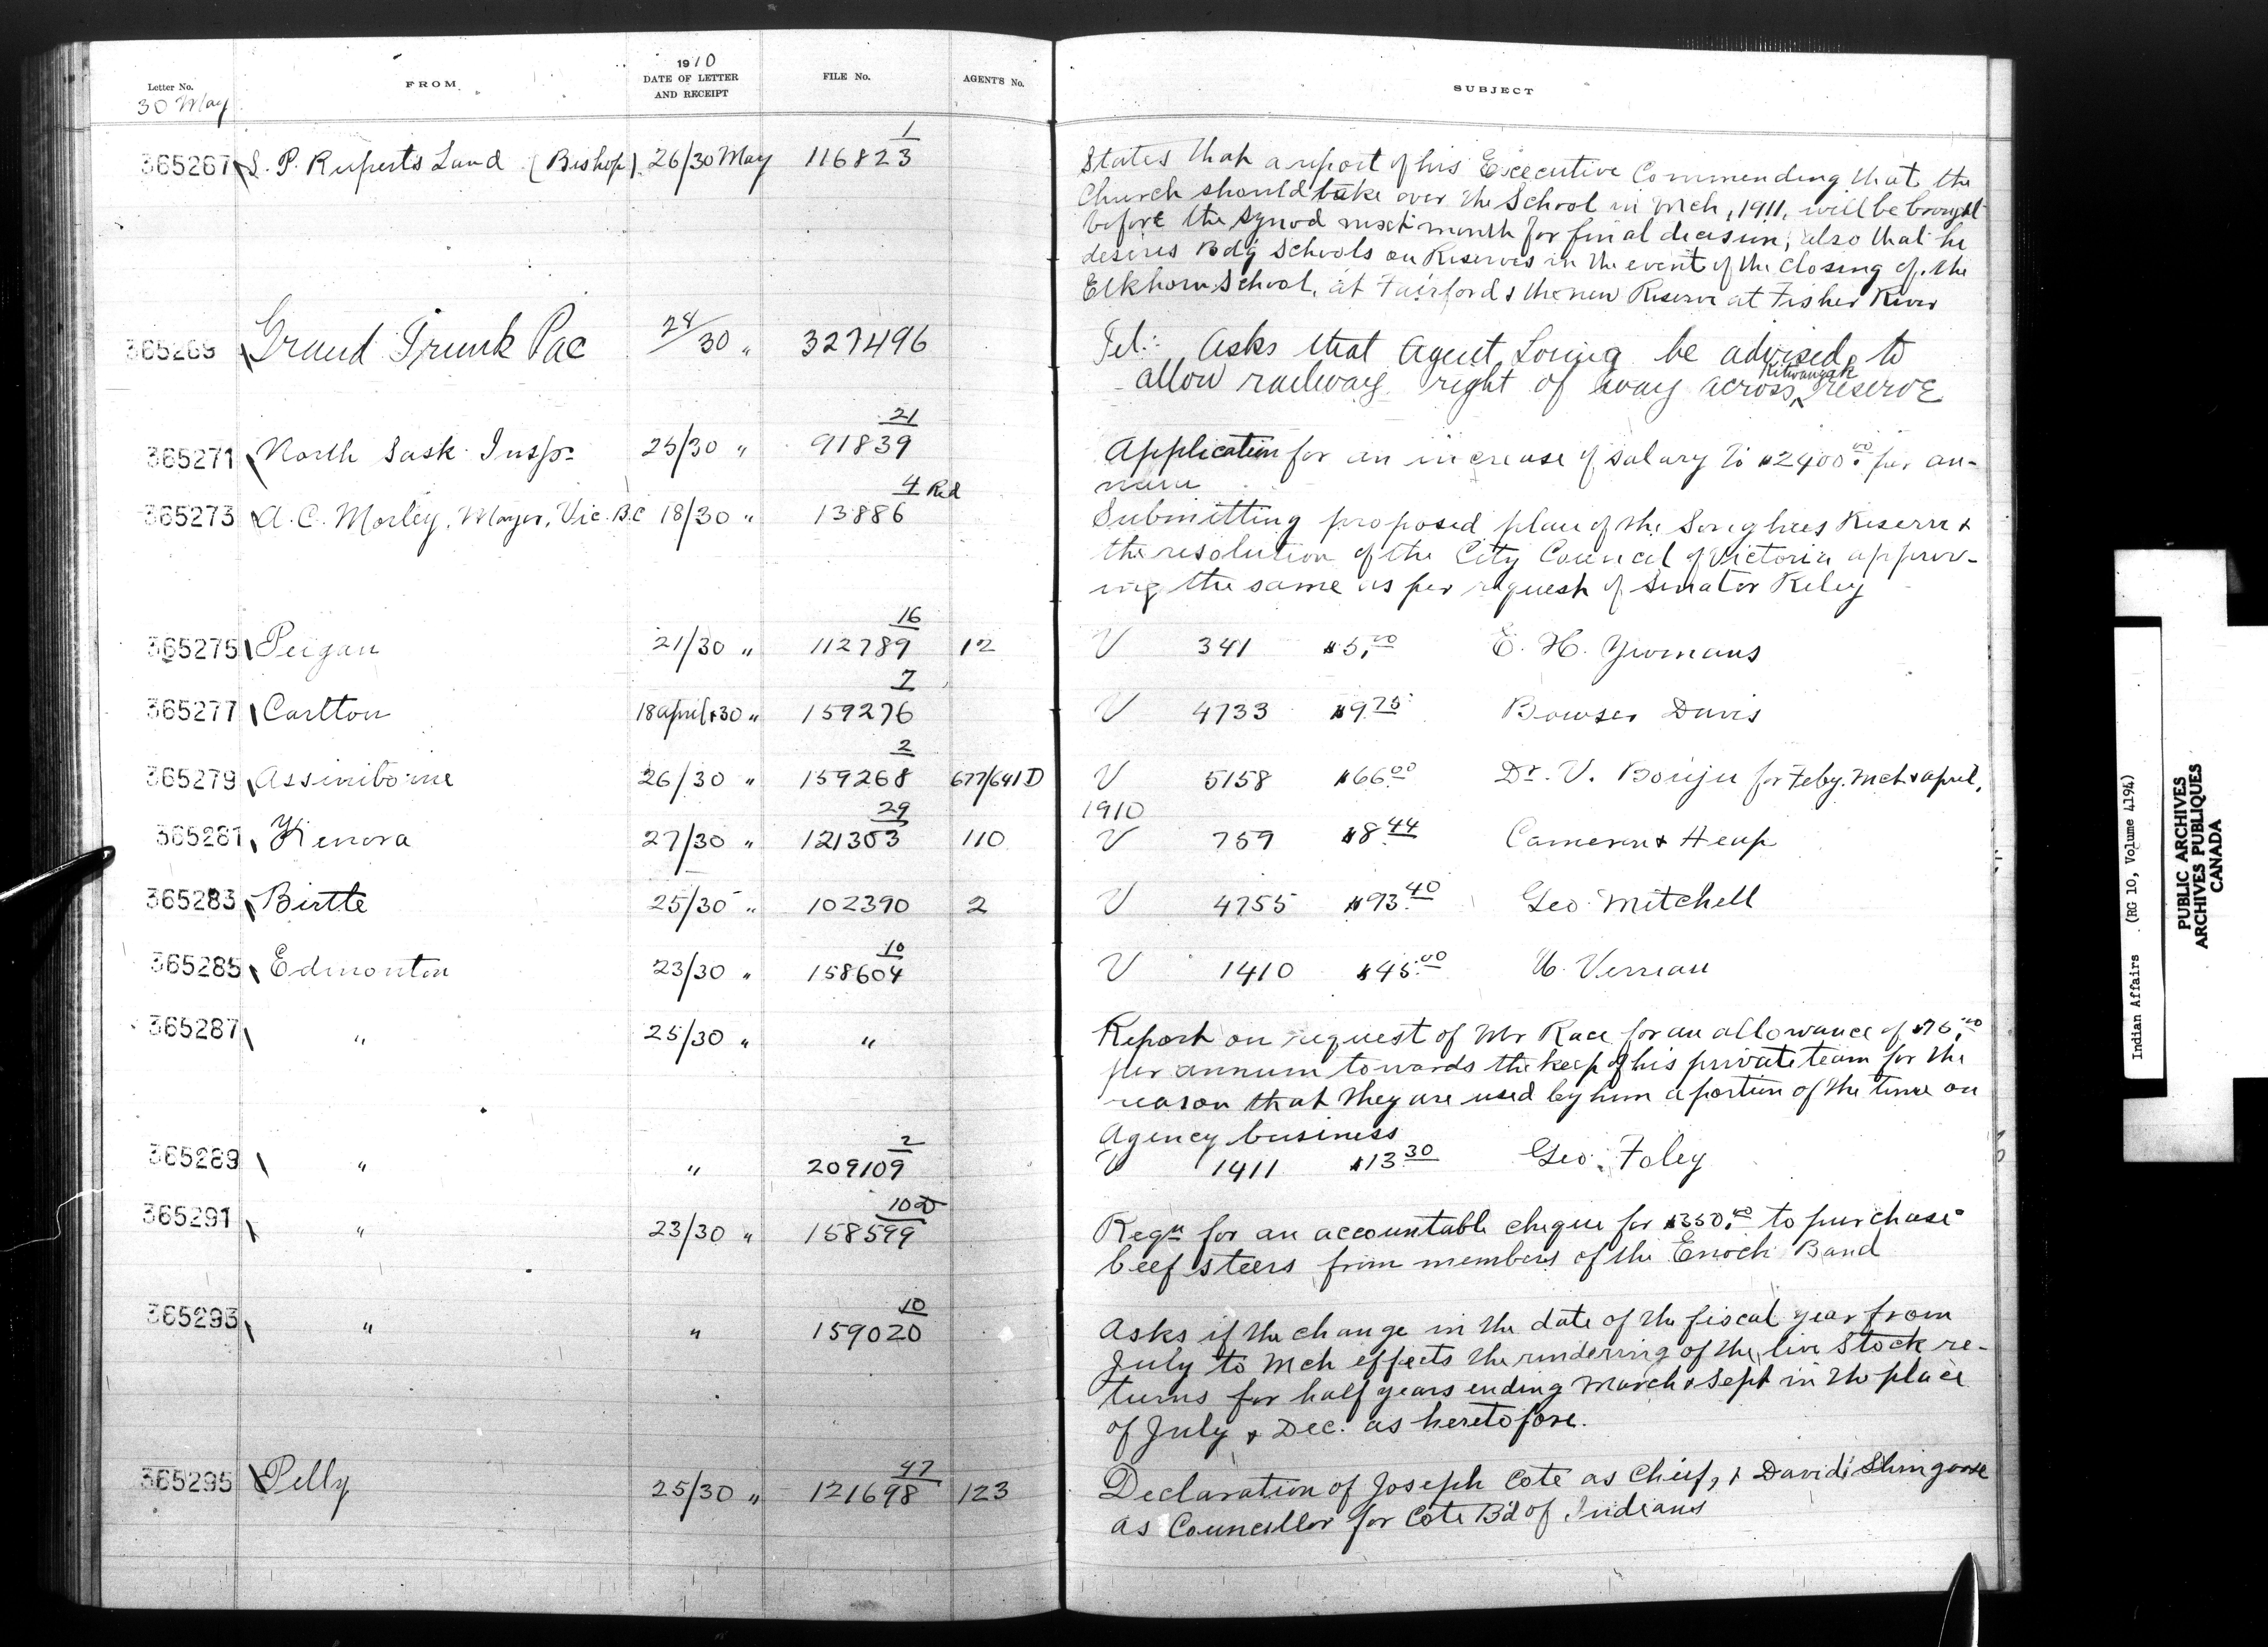 1910
Letter No. FROM DATE OF LETTER AND RECEIPT FILE No. AGENT'S No. SUBJECT
30 May
365267 S. P. Ruperts Land (Bishop) 26/30 May 116823 1
States that a report of his Executive Commending that the
Church should take over the School in Mch, 1911, will be brought
before the Synod next month for final decision, also that he
desires Bdg Schools on Reserves in the event of the closing of the
Elkhorn School, at Fairford & the new Reserve at Fisher River
365269 Grand Trunk Pac 28/30 " 327496
Tel: Asks that Agent Loring be advised to
allow railway right of way across Kitwangak reserve
365271 North Sask. Insp. 25/30 " 91839 21
Application for an increase of salary to $2400.00 per an-
num
365273 A. C. Morley, Mayor, Vic. B.C 18/30 " 13886 4 Red
Submitting proposed plan of the Songhees Reserve &
the resolution of the City Council of Victoria approv-
ing the same as per request of Senator Riley
365275 Peigan 21/30 " 112789 16 12 V 341 $5.00 E. H. Yeomans
365277 Carlton 18 April & 30 " 159276 7 V 4733 $9.75 Bowser Davis
365279 Assiniboine 26/30 " 159268 2 677/641D V 5158 $66.00 Dr. V. Bouju for Feby. Mch & April,
1910
365281 Kenora 27/30 " 121303 29 110 V 759 $8.44 Cameron & Heap
365283 Birtle 25/30 " 102390 2 V 4755 $93.40 Geo Mitchell
365285 Edmonton 23/30 " 158604 10 V 1410 $45.00 U. Verreau
365287 " 25/30 " "
Report on request of Mr Race for an allowance of $76.00
per annum towards the keep of his private team for the
reason that they are used by him a portion of the time on
Agency business
365289 " " 209109 2 V 1411 $13.30 Geo. Foley
365291 " 23/30 " 158599
Reqn for an accountable cheque for $350.00 to purchase
beef steers from members of the Enoch Band
365293 " " 159020 10
Asks if the change in the date of the fiscal year from
July to Mch effects the rendering of the live Stock re-
turns for half years ending March & Sept in the place
of July & Dec. as heretofore.
365295 Pelly 25/30 " 121698 47 123
Declaration of Joseph Cote as Chief, & David Shingoose
as Councillor for Cote Bd of Indians
Indian Affairs (RG 10, Volume 4194)
PUBLIC ARCHIVES
ARCHIVES PUBLIQUES
CANADA